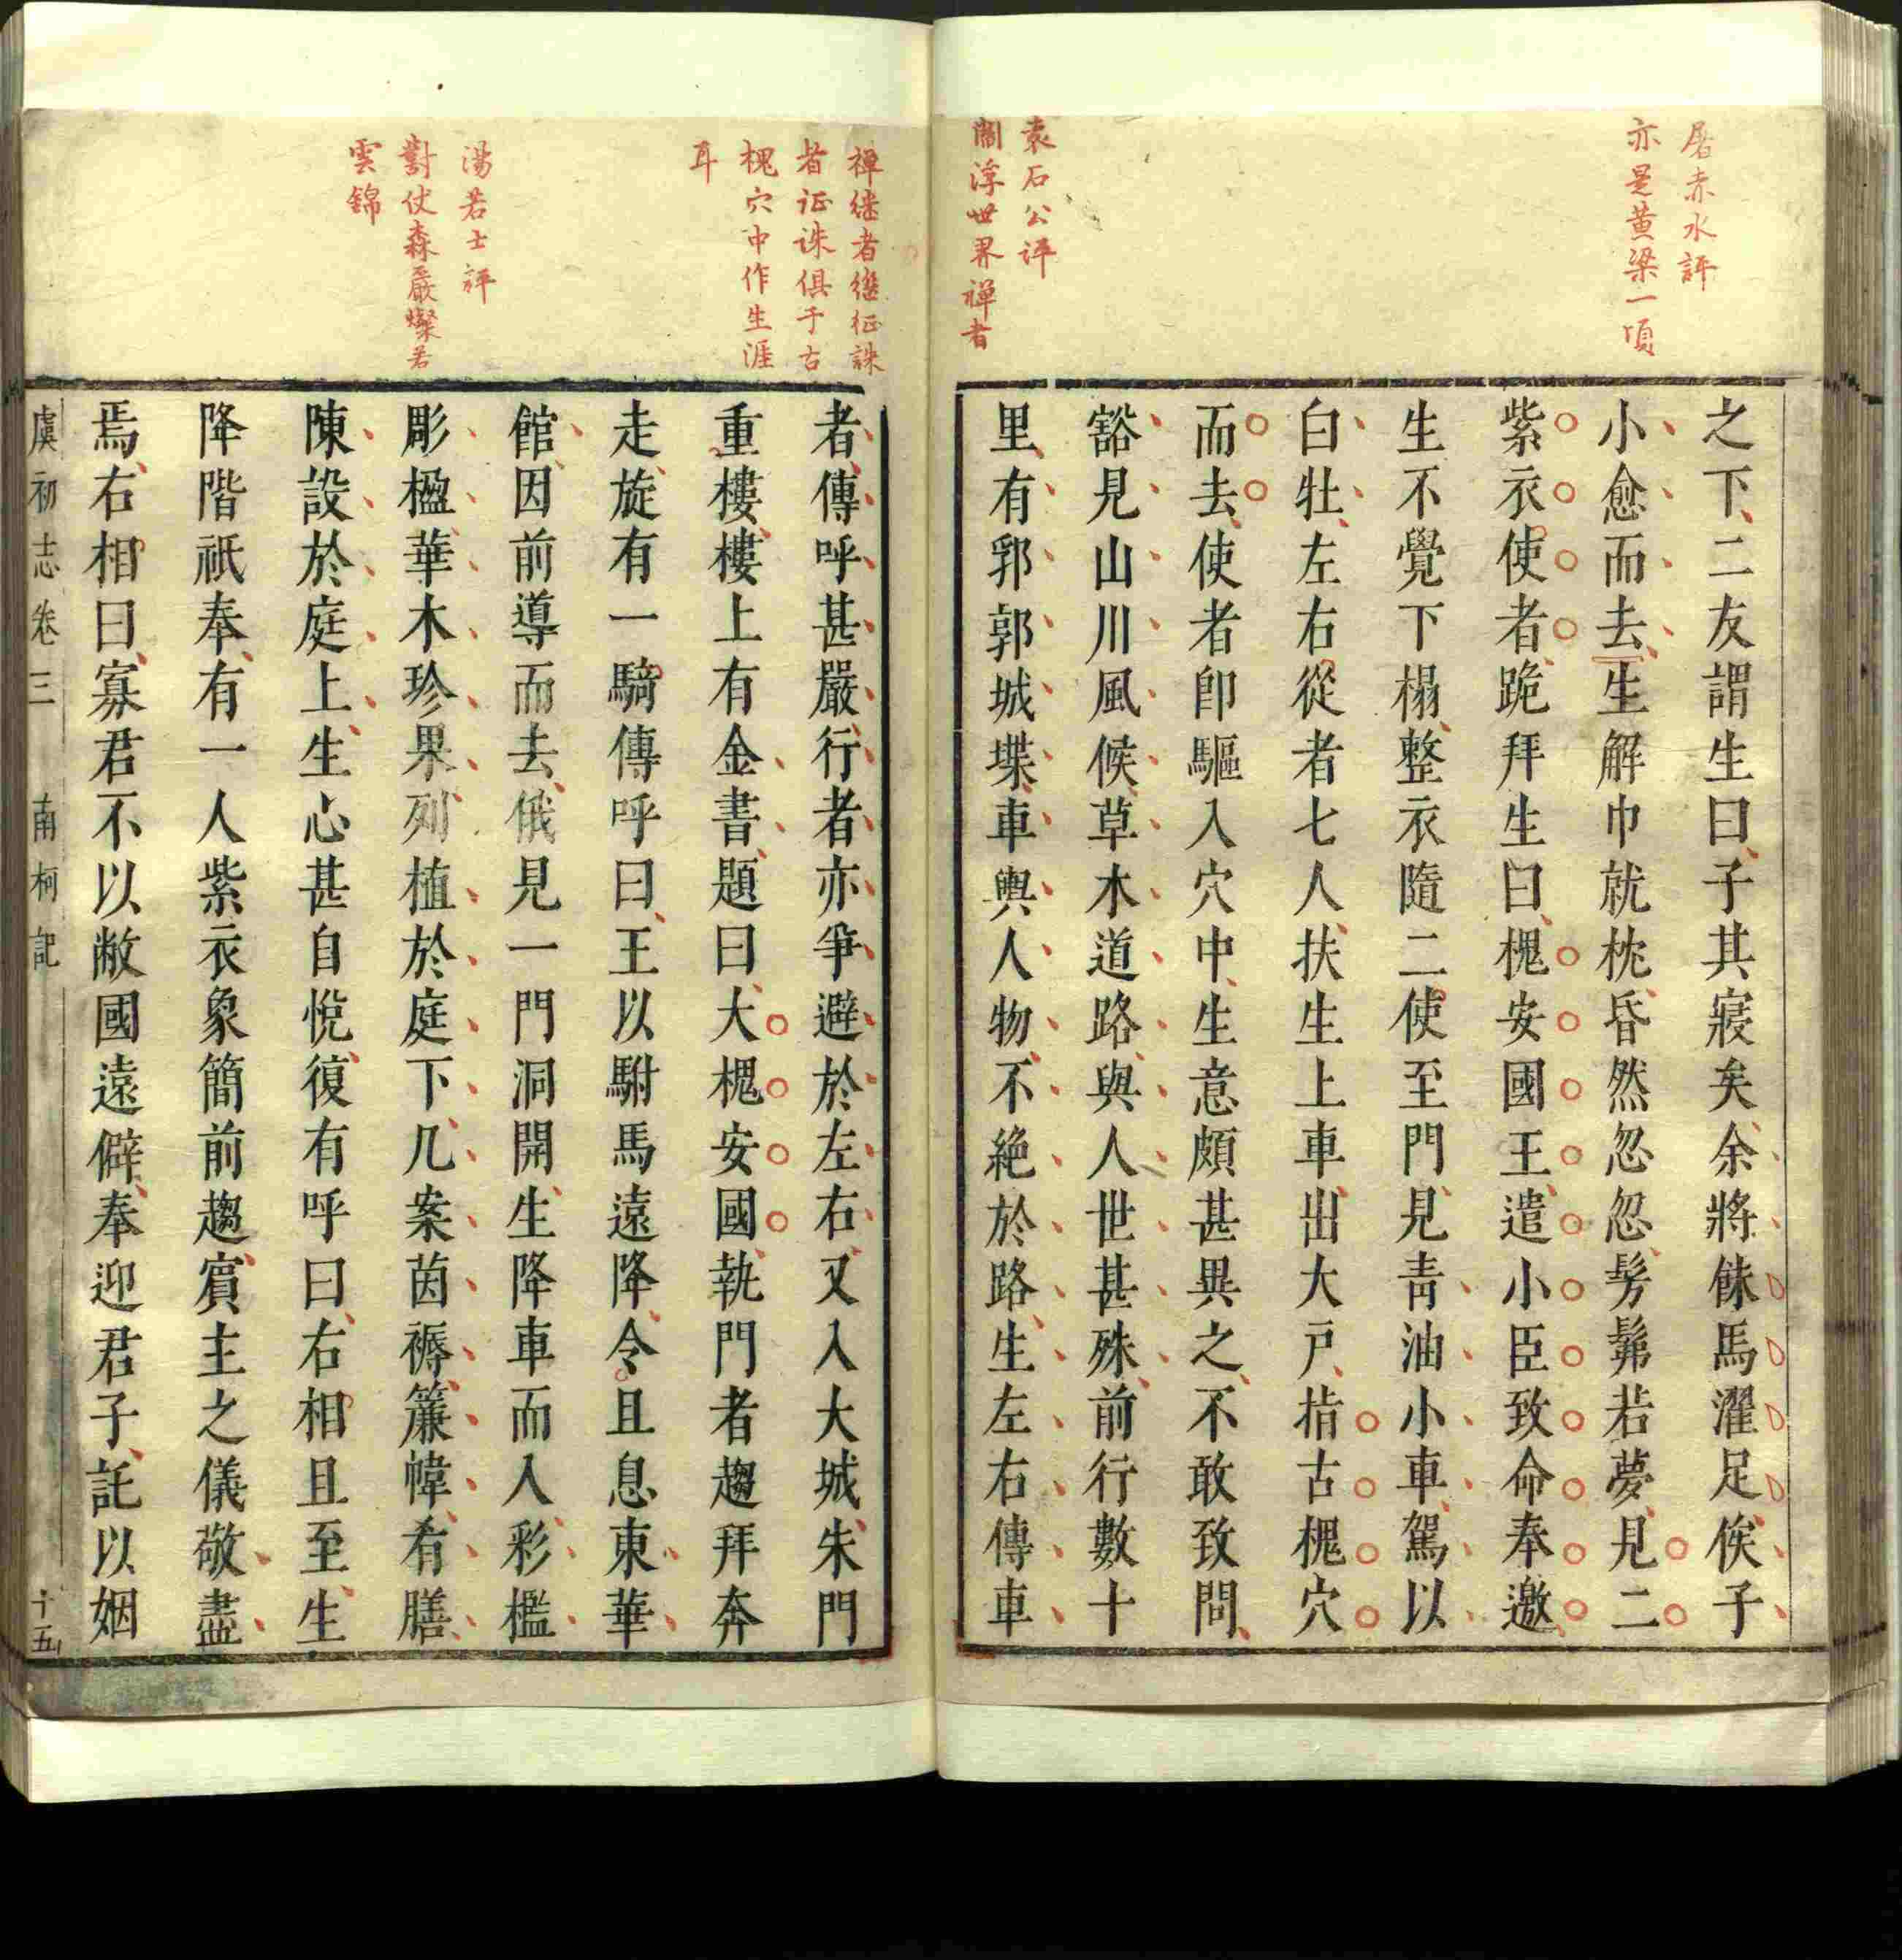 屠赤水評
亦是黃梁一頃
袁石公評
閻浮世界禪者
之下二友謂生曰子其寢矣余將餗馬濯足俟子
小愈而去生解巾就枕昏然忽忽髣髴若夢見二
紫衣使者跪拜生曰槐安國王遣小臣致命奉邀
生不覺下榻整衣隨二使至門見青油小車駕以
白牡左右從者七人扶生上車出大戶指古槐穴
而去使者卽驅入穴中生意頗甚異之不敢致問
豁見山川風候草木道路與人世甚殊前行數十
里有郛郭城堞車輿人物不絕於路生左右傳車
禪继者繼征誅
者征诛俱于古
槐穴中作生涯
耳
湯若士評
對仗森嚴燦若
雲錦
者傳呼甚嚴行者亦爭避於左右又入大城朱門
重樓樓上有金書題曰大槐安國執門者趨拜奔
走旋有一騎傳呼曰王以駙馬遠降令且息東華
館因前導而去俄見一門洞開生降車而入彩檻
彫楹華木珍果列植於庭下几案茵褥簾幃肴膳
陳設於庭上生心甚自悅復有呼曰右相且至生
降階祇奉有一人紫衣象簡前趨賓主之儀敬盡
焉右相曰寡君不以敝國遠僻奉迎君子託以姻
虞初志卷三 南柯記 十五